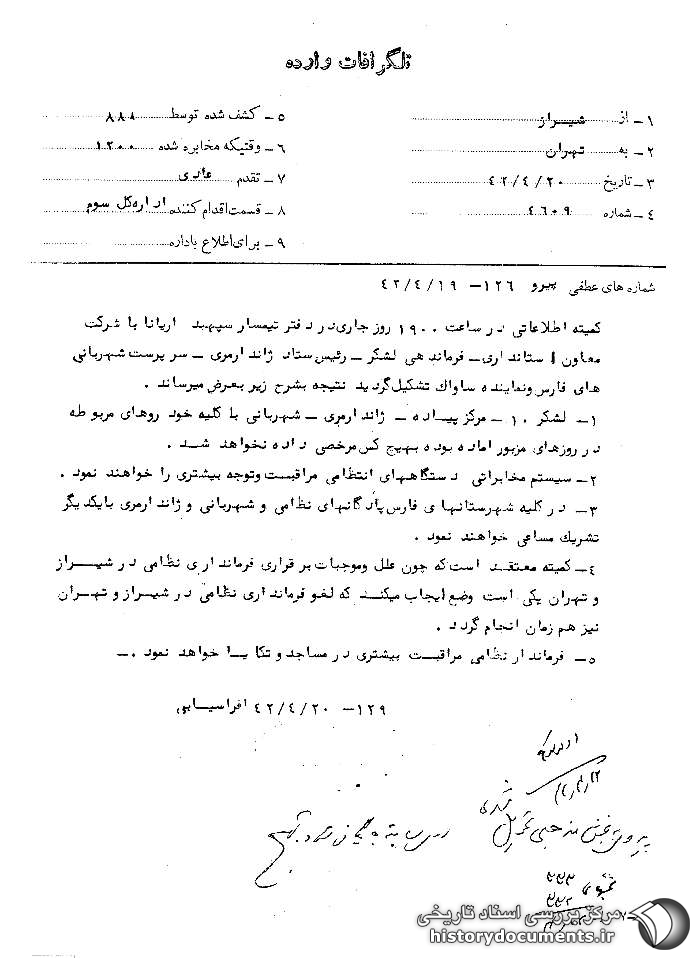 تلگرافات وارده
۱ـ از شیراز
۲ـ به تهران
۳ـ تاریخ ۴۲/۴/۲۰
۴ـ شماره ۴۶۰۹
۵ـ کشف شده توسط ۸۸۸
۶ـ وقتیکه مخابره شده ۱۲۰۰
۷ـ تقدم عادی
۸ـ قسمت اقدام کننده اداره کل سوم
۹ـ برای اطلاع باداره
شماره های عطفی پیرو ۱۲۶ـ ۴۲/۴/۱۹
کمیته اطلاعاتی در ساعت ۱۹۰۰ روز جاری در دفتر تیمسار سپهبد اریانا با شرکت
معاون استانداری ـ فرماندهی لشکر ـ رئیس ستاد ژاندارمری ـ سرپرست شهربانی
های فارس و نماینده ساواک تشکیل گردید نتیجه بشرح زیر بعرض میرساند .
۱ـ لشکر ۱۰ ـ مرکز پیاده ـ ژاندارمری ـ شهربانی با کلیه خودروهای مربوطه
در روزهای مزبور اماده بوده بهیچ کس مرخصی داده نخواهد شد .
۲ـ سیستم مخابراتی دستگاههای انتظامی مراقبت وتوجه بیشتری را خواهند نمود .
۳ـ در کلیه شهرستانهای فارس پادگانهای نظامی و شهربانی و ژاندارمری بایکدیگر
تشریک مساعی خواهند نمود .
۴ـ کمیته معتقد است که چون علل وموجبات برقراری فرمانداری نظامی در شیراز
و تهران یکی است وضع ایجاب میکند که لغو فرمانداری نظامی در شیراز و تهران
نیز هم زمان انجام گردد .
۵ـ فرماندار نظامی مراقبت بیشتری در مساجد و تکایا خواهد نمود .ـ
۱۲۹ـ ۴۲/۴/۲۰ افراسیابی
مرکز بررسی اسناد تاریخی
historydocuments.ir